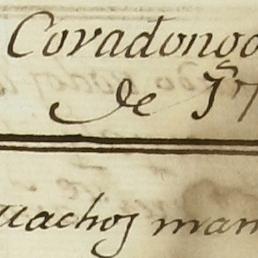 Covadongo
de 17
uachos man